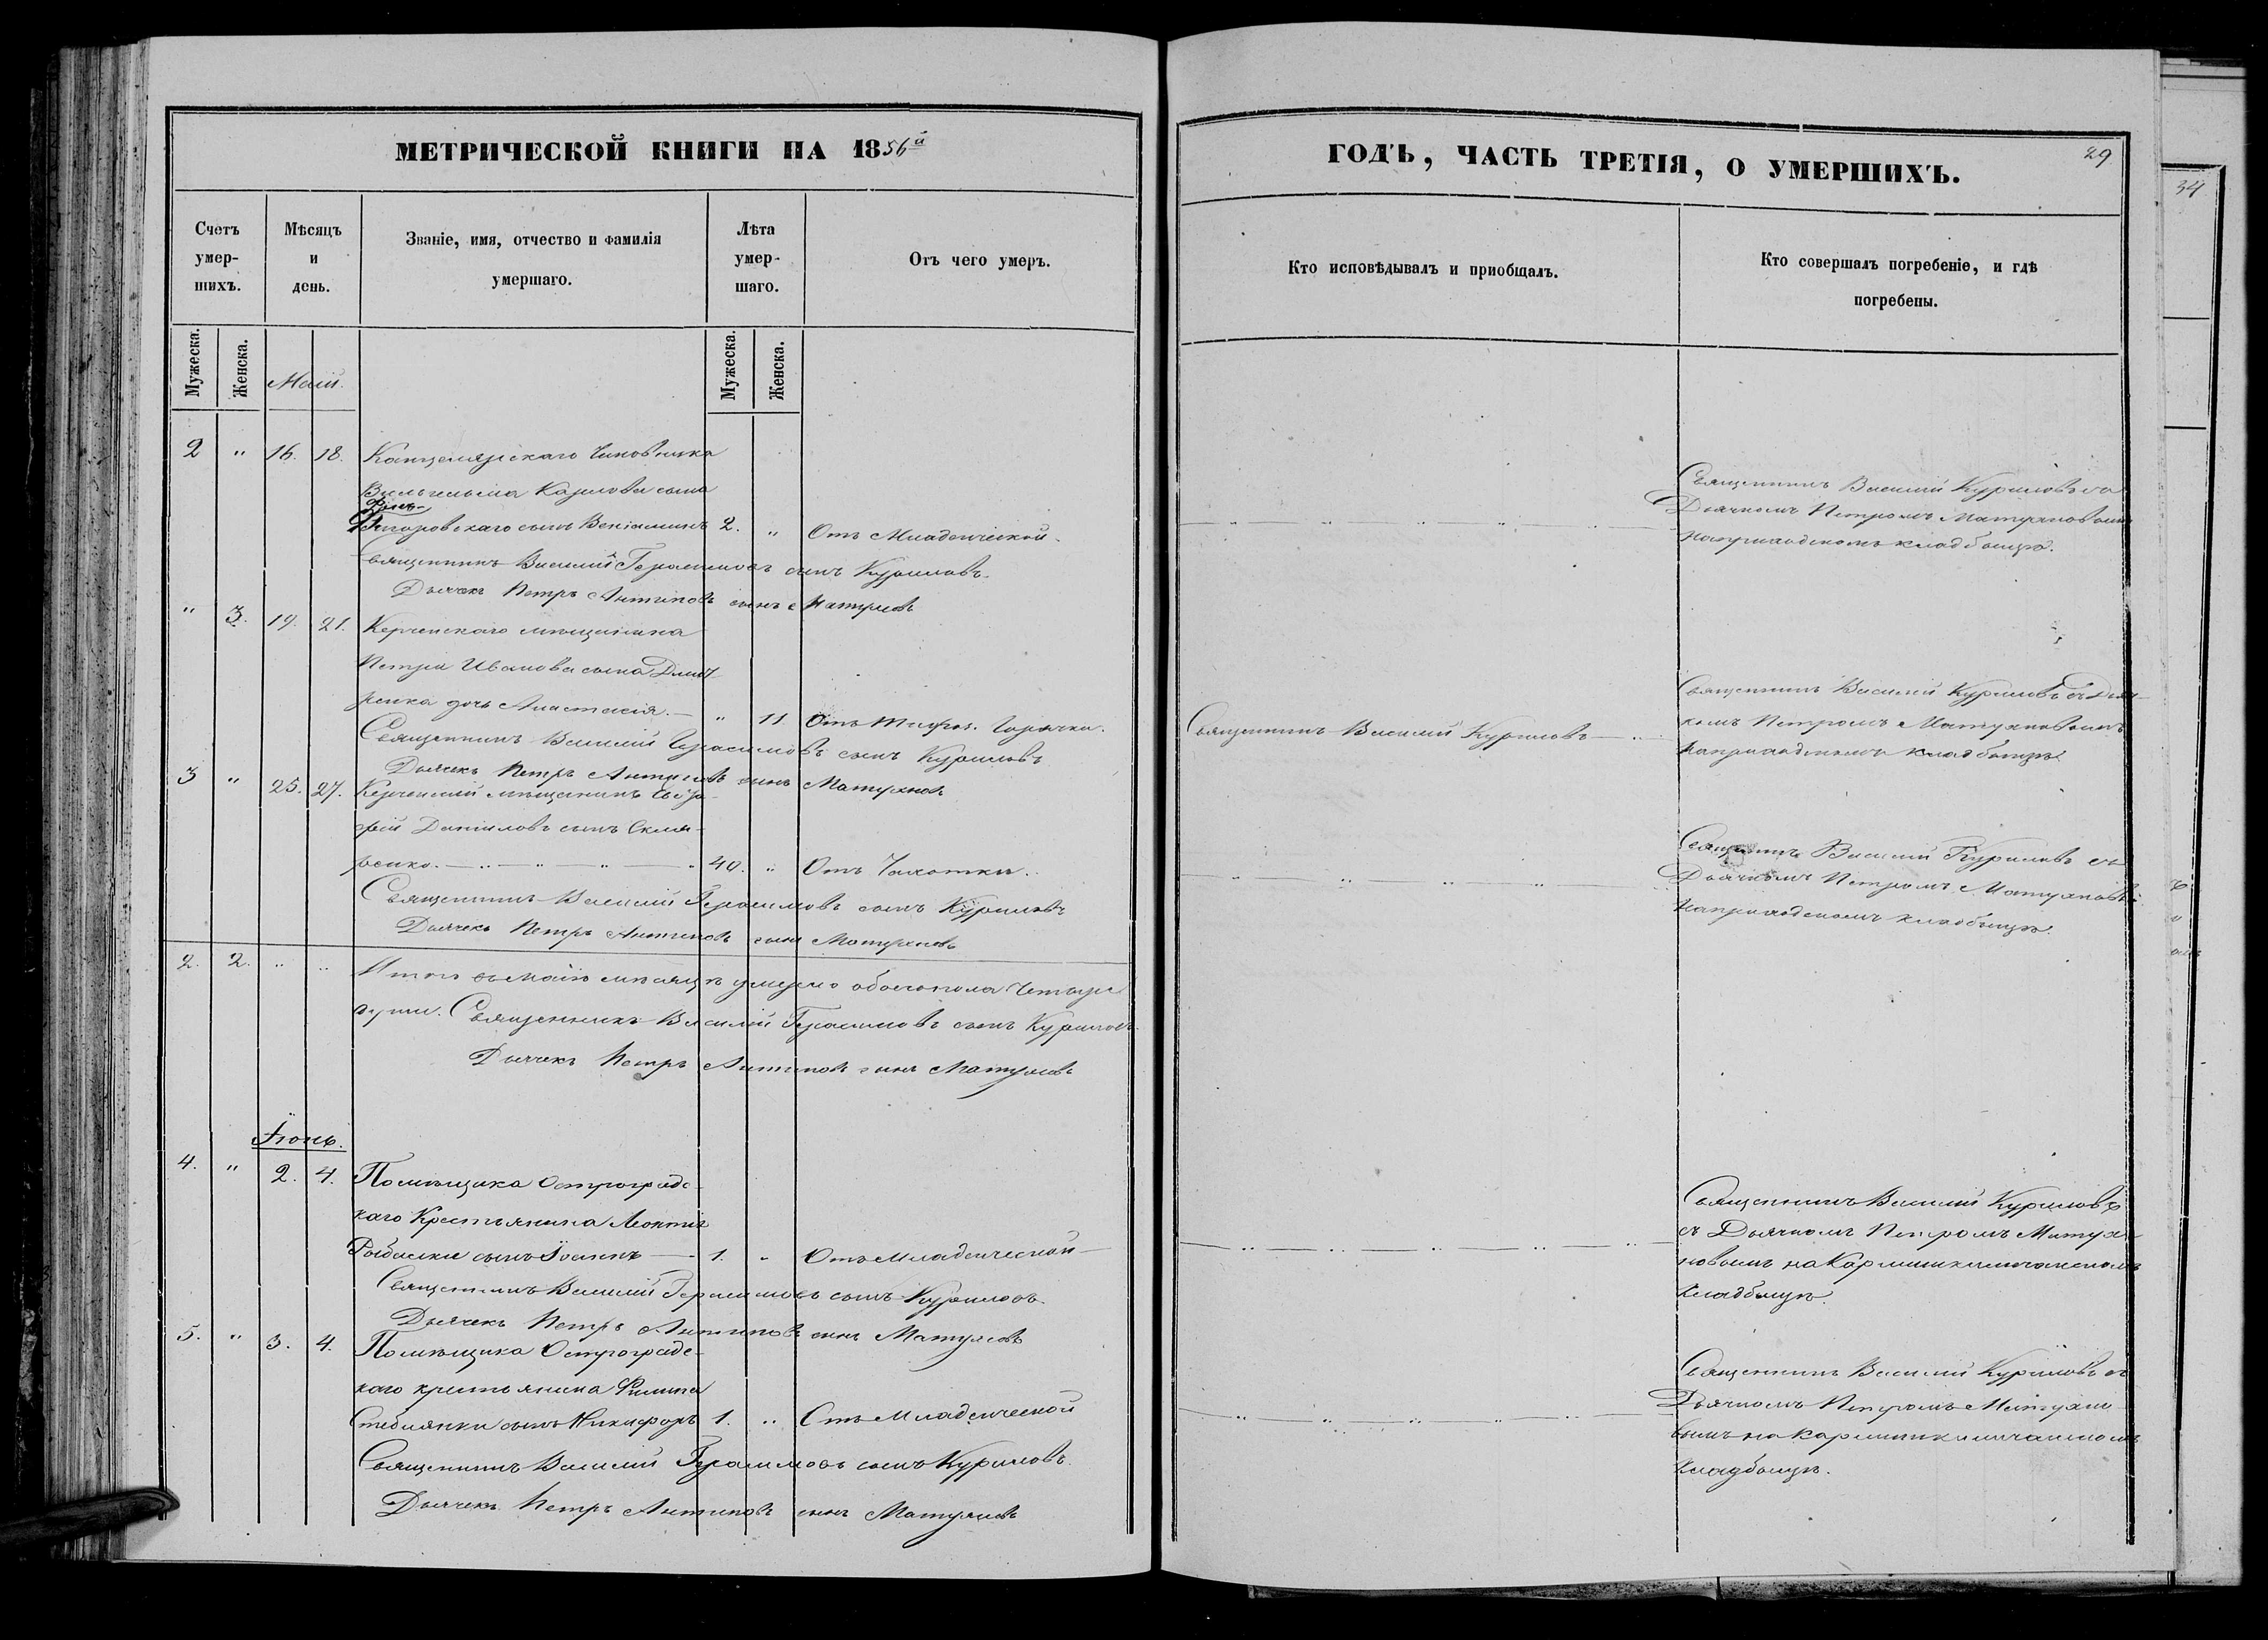 МЕТРИЧЕСКОЙ КНИГИ НА 1856й
ГОДЪ, ЧАСТЬ ТРЕТІЯ, О УМЕРШИХЪ.
29
34
Счетъ умер-шихъ.
Мѣсяцъ и день.
Званіе, имя, отчество и фамилія умершаго.
Лѣта умер-шаго.
Отъ чего умеръ.
Кто исповѣдывалъ и приобщалъ.
Кто совершалъ погребеніе, и гдѣ погребены.
Мужеска.
Женска.
Мужеска.
Женска.
Маій.
2 " 16. 18. Канцелярскаго Чиновника
Вильгельма Карлова сына
сынъ Веніаминъ 2. " Отъ Младенческой.
Священникъ Василій Куриловъ съ
Дьячкомъ Петромъ Матухновымъ
на приходскомъ кладбищѣ.
Священникъ Василій Герасимовъ сынъ Куриловъ.
Дьячекъ Петръ Антиповъ сынъ Матухновъ
" 3. 19. 21. Керченскаго мѣщанина
Петра Иванова сына Дмит
ренка дочь Анастасія. — " 11 Отъ Горячки.
Священникъ Василій Куриловъ —
Священникъ Василій Куриловъ съ Дьяч-
комъ Петромъ Матухновымъ
на приходскомъ кладбищѣ.
Священникъ Василій Герасимовъ сынъ Куриловъ
Дьячекъ Петръ Антиповъ сынъ Матухновъ
3 " 25. 27. Керченскій мѣщанинъ
Даніиловъ сынъ Скля-
ренко. — 49. " Отъ Чахотки.
Священникъ Василій Куриловъ съ
Дьячкомъ Петромъ Матухновы
на приходскомъ кладбищѣ.
Священникъ Василій Герасимовъ сынъ Куриловъ
Дьячекъ Петръ Антиповъ сынъ Матухновъ
2. 2. " " Итого въ маіѣ мѣсяцѣ умерло обоего пола Четыре
души. Священникъ Василій Герасимовъ сынъ Куриловъ
Дьячекъ Петръ Антиповъ сынъ Матухновъ
Іюнь.
4. " 2. 4. Помѣщика Остроградс-
каго Крестьянина Леонтія
Рыбалки сынъ Іоаннъ — 1. " Отъ Младенческой
Священникъ Василій Куриловъ
съ Дьячкомъ Петромъ Матух-
новымъ на
Кладбищѣ.
Священникъ Василій Герасимовъ сынъ Куриловъ.
Дьячекъ Петръ Антиповъ сынъ Матухновъ
5. " 3. 4. Помѣщика Остроградс-
каго крестьянина Филипа
Стеблянки сынъ Никифоръ 1. " Отъ Младенческой
Священникъ Василій Куриловъ съ
Дьячкомъ Петромъ Матухно-
вымъ на
Кладбищѣ.
Священникъ Василій Герасимовъ сынъ Куриловъ.
Дьячекъ Петръ Антиповъ сынъ Матухновъ